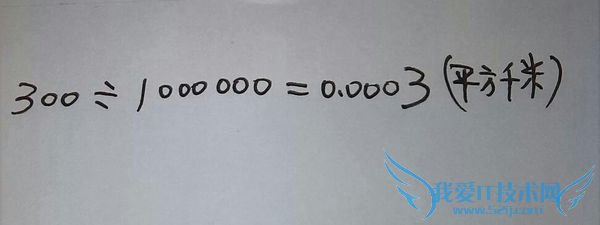 300÷1000000=0.0003(平方千米)
我爱IT技术网
www.52ij.com